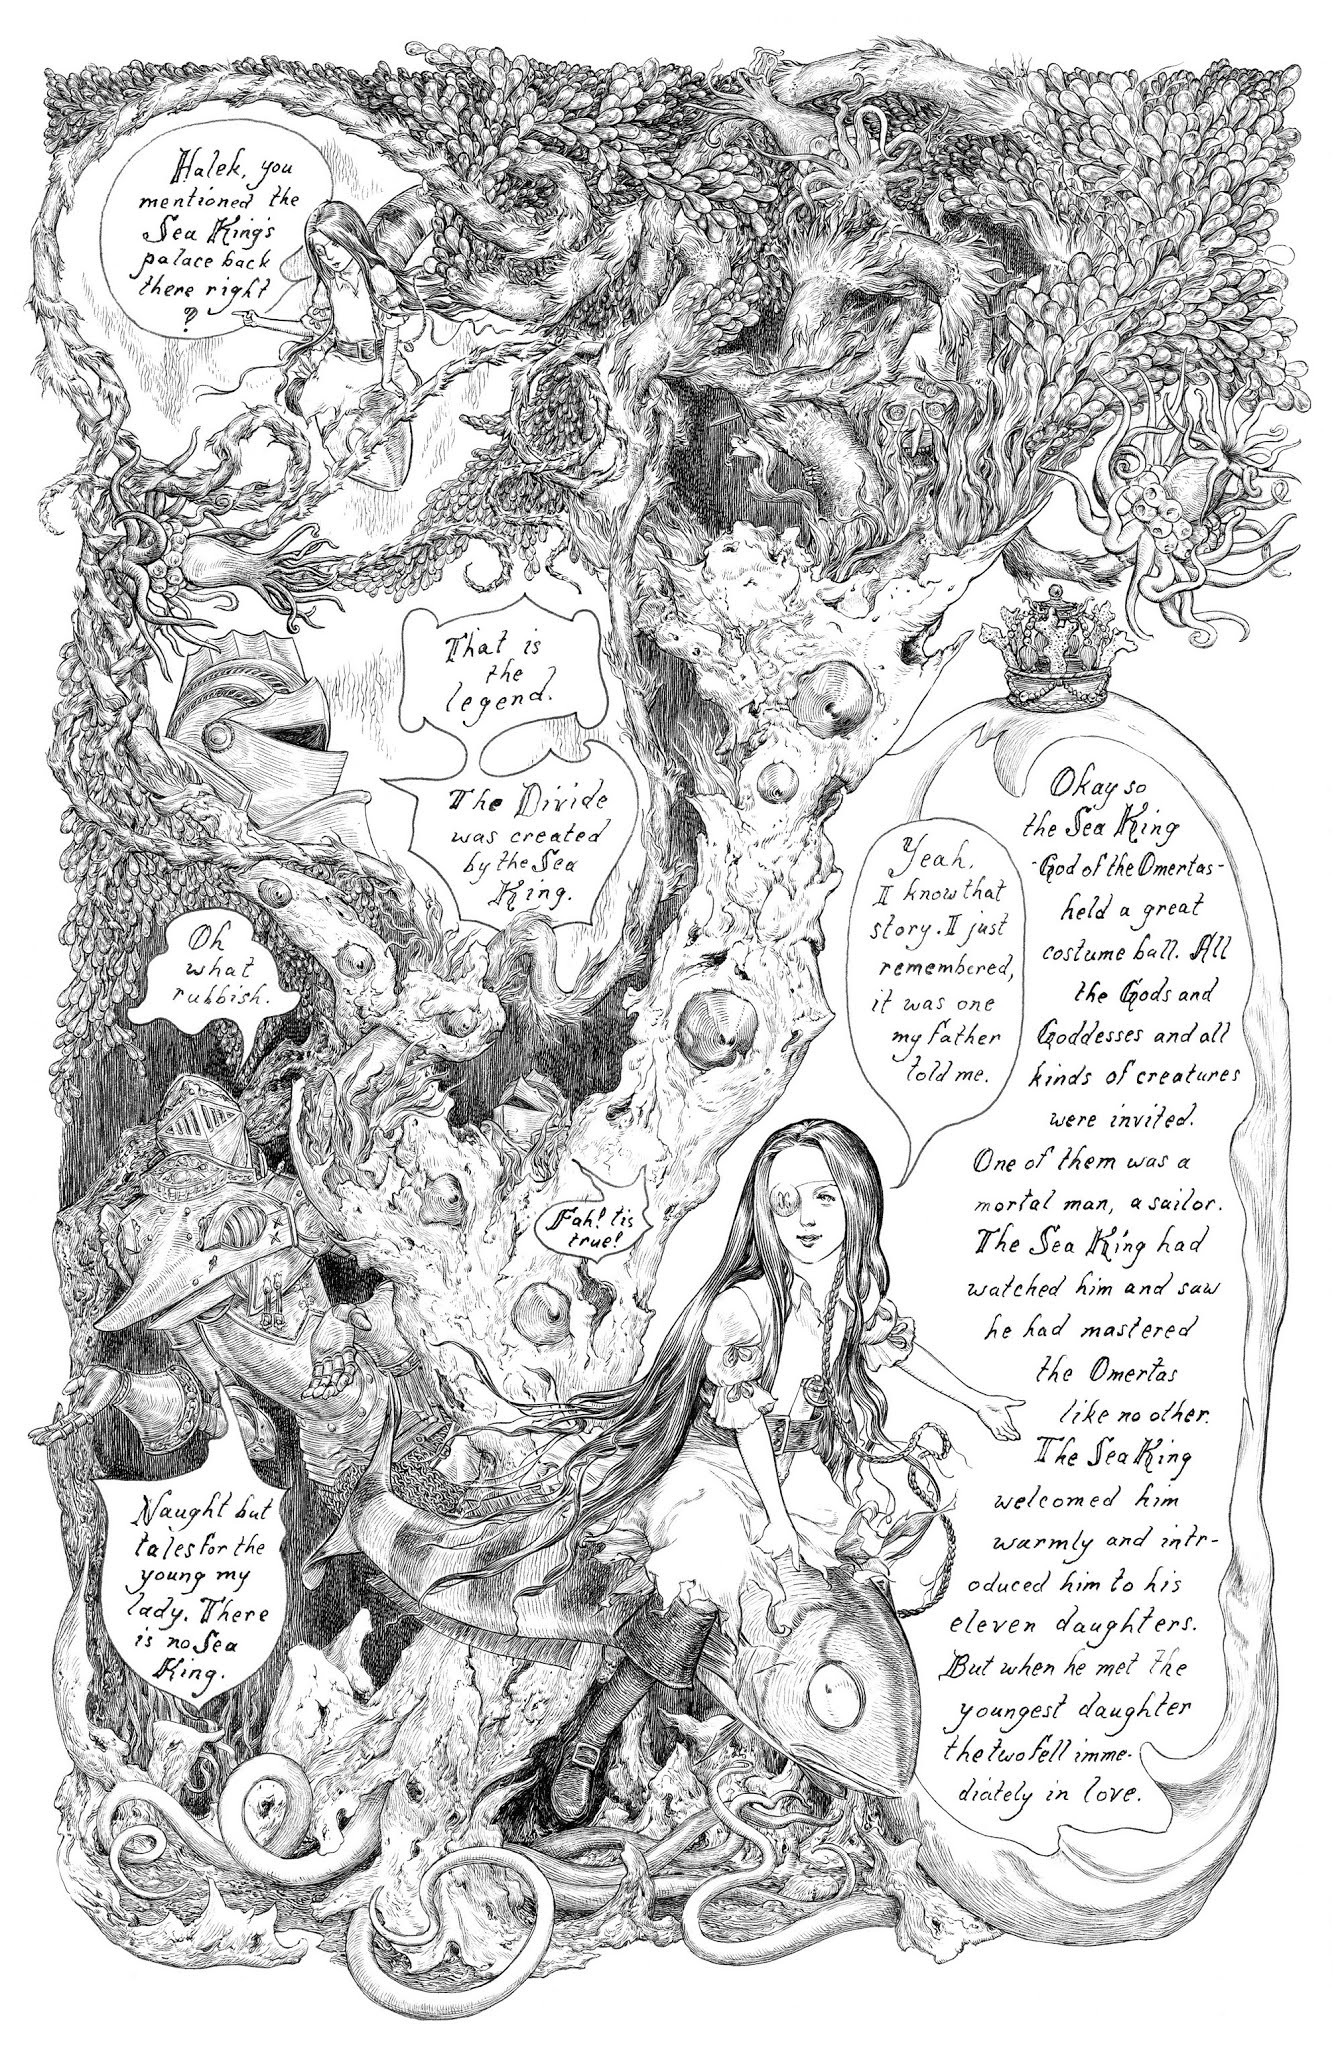 Halek, you
mentioned the
Sea King's
palace back
there right
?
That is
the
legend.
The Divide
was created
by the Sea
King.
Oh
what
rubbish.
Fah! tis
true!
Naught but
tales for the
young my
lady. There
is no Sea
King.
Yeah,
I know that
story. I just
remembered,
it was one
my father
told me.
Okay so
the Sea King
-God of the Omertas-
held a great
costume ball. All
the Gods and
Goddesses and all
kinds of creatures
were invited.
One of them was a
mortal man, a sailor.
The Sea King had
watched him and saw
he had mastered
the Omertas
like no other.
The Sea King
welcomed him
warmly and intr-
oduced him to his
eleven daughters.
But when he met the
youngest daughter
the two fell imme-
diately in love.